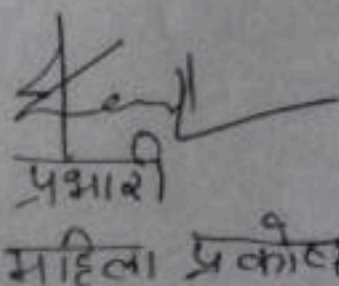 प्रभारी
महिला प्रकोष्ठ